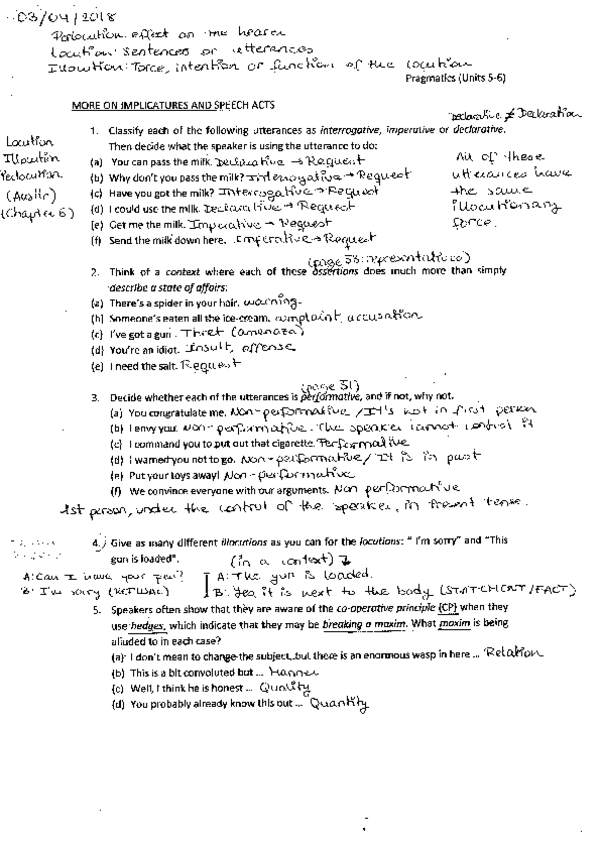 03/04/2018
Perlocution: effect on the hearer
Locution: Sentences or utterances
Illocution: Force, intention or function of the locution
Pragmatics (Units 5-6)
MORE ON IMPLICATURES AND SPEECH ACTS
Declarative ≠ Declaration
1. Classify each of the following utterances as interrogative, imperative or declarative.
Then decide what the speaker is using the utterance to do:
(a) You can pass the milk. Declarative → Request
(b) Why don't you pass the milk? Interrogative → Request
(c) Have you got the milk? Interrogative → Request
(d) I could use the milk. Declarative → Request
(e) Get me the milk. Imperative → Request
(f) Send the milk down here. Imperative → Request
Locution
Illocution
Perlocution
(Austin)
(Chapter 6)
All of these
utterances have
the same
illocutionary
force.
(page 53: representatives)
2. Think of a context where each of these assertions does much more than simply
describe a state of affairs:
(a) There's a spider in your hair. warning.
(b) Someone's eaten all the ice-cream. complaint, accusation
(c) I've got a gun. Thret (amenaza)
(d) You're an idiot. Insult, offense
(e) I need the salt. Request
(page 51)
3. Decide whether each of the utterances is performative, and if not, why not.
(a) You congratulate me. Non-performative / It's not in first person
(b) I envy you. Non-performative. The speaker cannot control it
(c) I command you to put out that cigarette. Performative
(d) I warned you not to go. Non-performative / It is in past
(e) Put your toys away! Non-performative
(f) We convince everyone with our arguments. Non performative
1st person, under the control of the speaker, in present tense.
4. Give as many different illocutions as you can for the locutions: " I'm sorry" and "This
gun is loaded".
(in a context) ↴
A: Can I have your pen?
B: I'm sorry (REFUSAL)
A: The gun is loaded.
B: Yea it is next to the body (STATEMENT/FACT)
5. Speakers often show that they are aware of the co-operative principle (CP) when they
use hedges, which indicate that they may be breaking a maxim. What maxim is being
alluded to in each case?
(a) I don't mean to change the subject, but there is an enormous wasp in here ... Relation
(b) This is a bit convoluted but ... Manner
(c) Well, I think he is honest ... Quality
(d) You probably already know this but ... Quantity